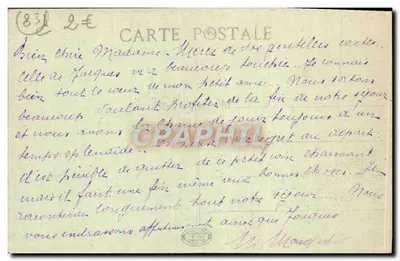 (83) 2€
CARTE POSTALE
Bien chère Madame. Merci de vos gentilles cartes.
Celle de Jacques m'a beaucoup touchée. Je connais
bien tout le cœur de mon petit ami. Nous sortons
beaucoup voulant profiter de la fin de notre séjour
et nous avons la chance de jouir toujours d'un
temps splendide. regret au départ
il est pénible de quitter de ce petit coin charmant
mais il faut une fin même aux bonnes choses. Je
raconterai longuement tout notre séjour. Nous
vous embrassons affectueusement ainsi que Jacques